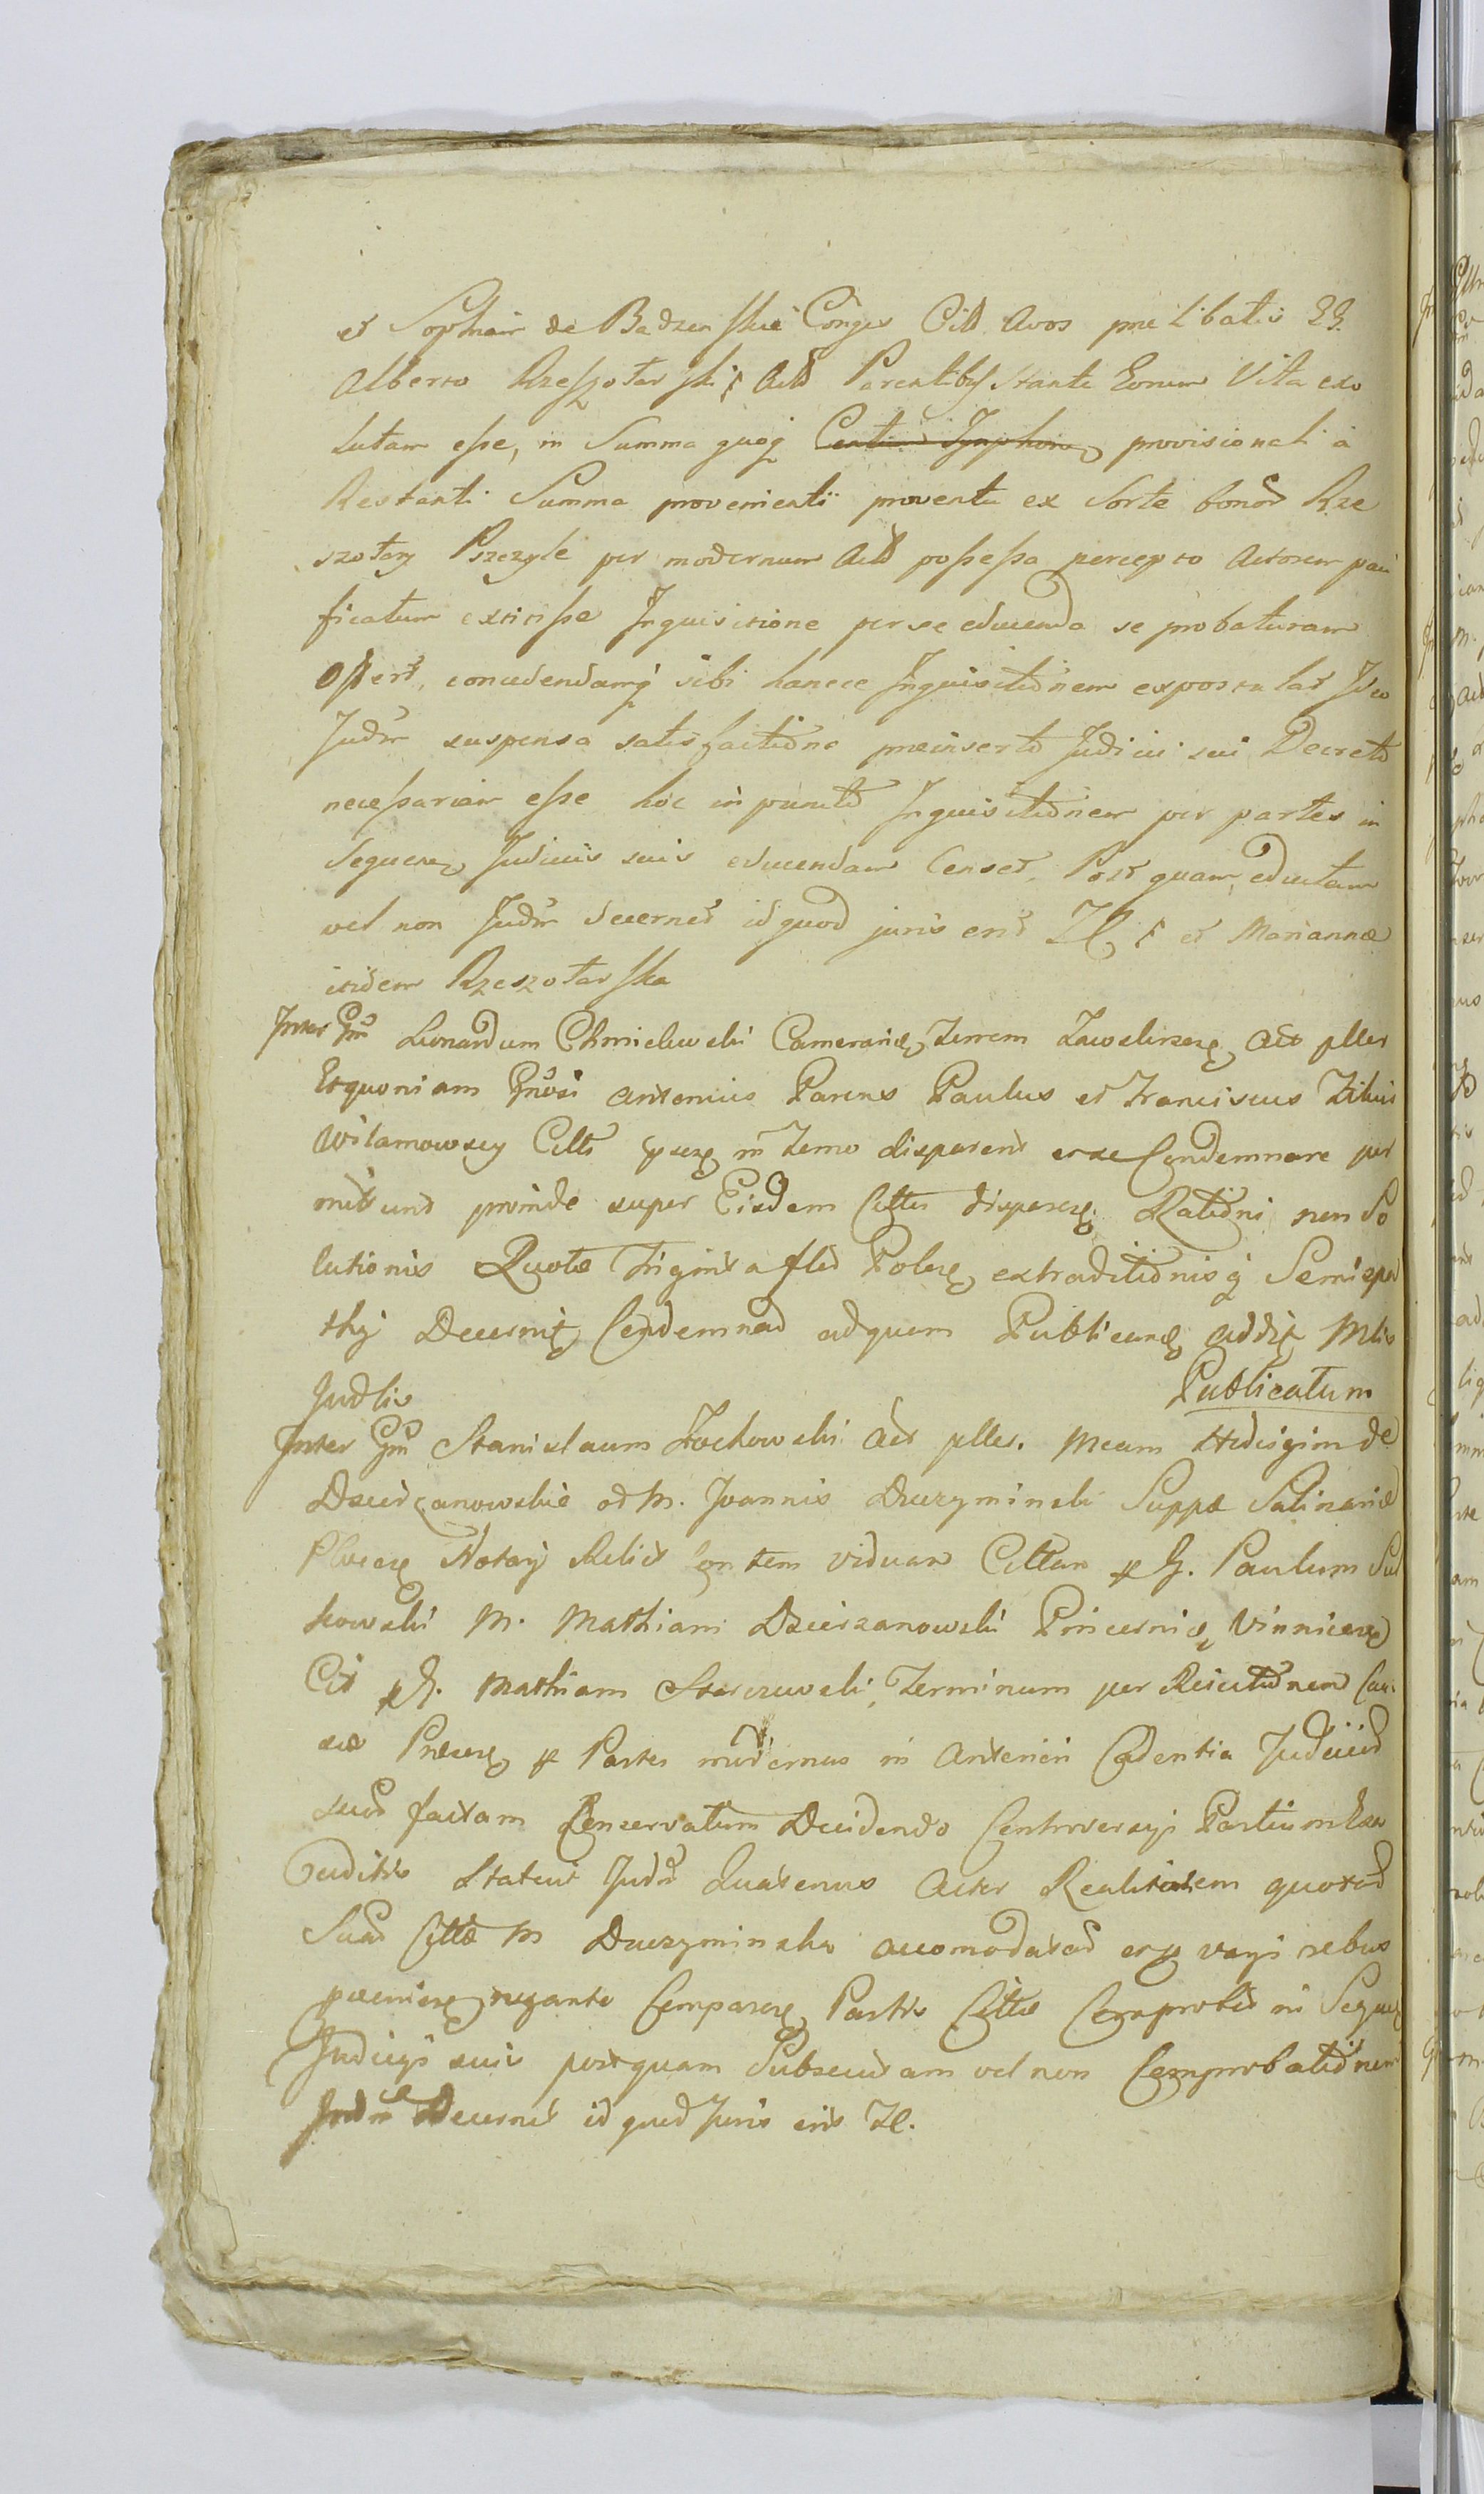 et Sophiam de Badzenskie Conjges Citt Avos prae libatis GG.
Alberto Rzeszotarski Actt Parentibs stante Eorum Vita exo
lutam esse, in Summa quoq provisionali a
Restanti Summa provenienti proventu ex Sorte bonor Rze
szotary Pszczele per modernum Act possessa percepto Actorem paci
ficatum extitisse Inquisitione per se educenda se probaturam
offert, concedendamq sibi hancce Inquisitionem expostulat Ideo
Judm suspensa satisfactione praeinserto Judicii sui Decreto
necessariam esse hoc in puncto Inquisitionem per partes in
Sequen Judiciis suis educendam Censet. Post quam eductam
vel non Judm decernet id quod juris erit et Marianna
itidem Rzeszotarska
Inter Gm Leonardum Chmielewski Camerarie Terrem Zawskrzen Act pller
Etquoniam Gnosi Antonius Parens Paulus et Franciscus Filius
Wilamowscy Citti in Temo disparent et se Condemnare per
mittunt proinde super Eisdem Cittis disparen Rationi non So
lutionis Quotae Triginta fl Polon extraditionisq Semispa
thy Decernit Condemnat ad quam Publicand addit Mlis
Judlis Publicatum
Inter Gm Stanislaum Zochowski Act pller. Mcam Hedvigim de
Dzierzanowskie od M. Joannis Duczyminski Suppae Salinariae
Plocen Notarj Relict tem viduam Cittan G. Paulum Sul
kowski M. Mathiam Dzierzanowski Pincernie Vinnicen
Cit G. Mathiam Starczewski, Terminum per Reiectionem Cau
sae Praesen Partes modernas in Anteriori Cadentia Judicior
suor factam Conservatum Decidendo Controversys Partium
Auditis Statuit Judm Quatenus Actor Realitatem quotar
Suar Cittae M Duczyminska accomodatar et varys rebus
negante Comparen Partis Cittae Comprobet in Sequen
Judicys suis postquam Subsecutam vel non Comprobationem
Judm Decernet id quod Juris erit